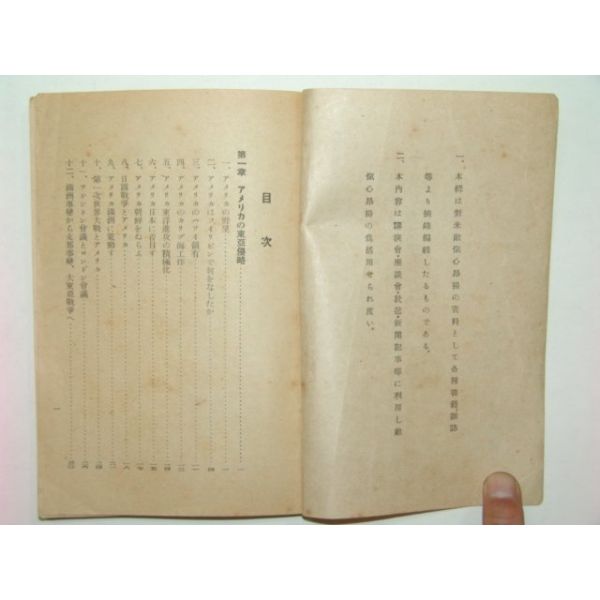 一、本輯は對米敵愾心昂揚の資料として各種書籍雜誌
等より摘錄編輯したるものである。
二、本内容は講演會・座談會・放送・新聞記事等に利用し敵
愾心昂揚の爲活用せられ度い。
目次
第一章 アメリカの東亞侵略
一、アメリカの野望
二、アメリカはフイリピンで何をなしたか
三、アメリカのハワイ領有
四、アメリカのカリブ海工作
五、アメリカ東洋進攻の積極化
六、アメリカ日本に着目す
七、アメリカ朝鮮をねらふ
八、日露戰爭とアメリカ
九、アメリカ滿洲に策動す
十、第一次世界大戰とアメリカ
十一、ワシントン會議とロンドン會議
十二、滿洲事變から支那事變、大東亞戰爭へ